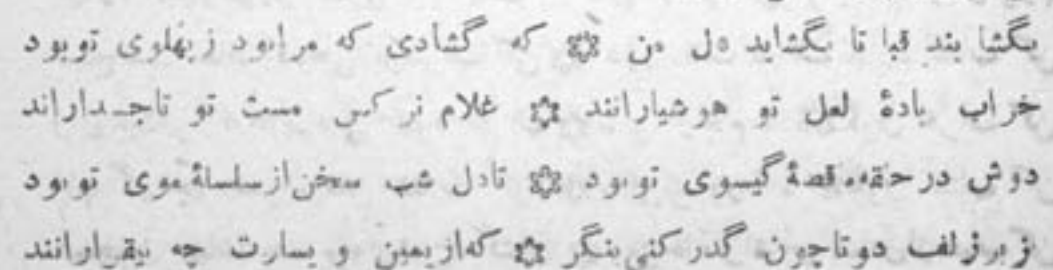 بگشا بند قبا تا بگشاید دل من ۞ که گشادی که مرا بود ز پهلوی تو بود
خراب بادهٔ لعل تو هوشیارانند ۞ غلام نرگس مست تو تاجداراند
دوش در حقه قصهٔ گیسوی تو بود ۞ تا دل شب سخن از سلسلهٔ موی تو بود
ز بر زلف دو تا چون گدر کنی بنگر ۞ که از یمین و یسارت چه بیقرارانند